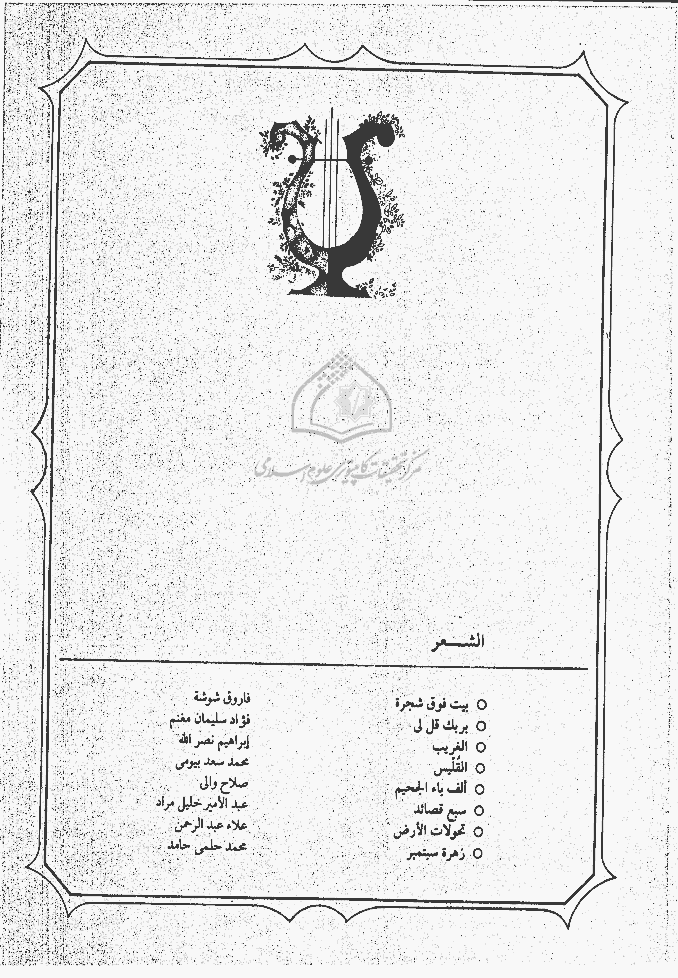 مرکز تحقیقات کامپیوتری علوم اسلامی
الشـــعر
بيت فوق شجرة فاروق شوشة
بربك قل لى فؤاد سليمان مغنم
الغريب إبراهيم نصر الله
القُلَّيس محمد سعد بيومى
ألف ياء الجحيم صلاح والى
سبع قصائد عبد الأمير خليل مراد
تحولات الأرض علاء عبد الرحمن
زهرة سبتمبر محمد حلمى حامد